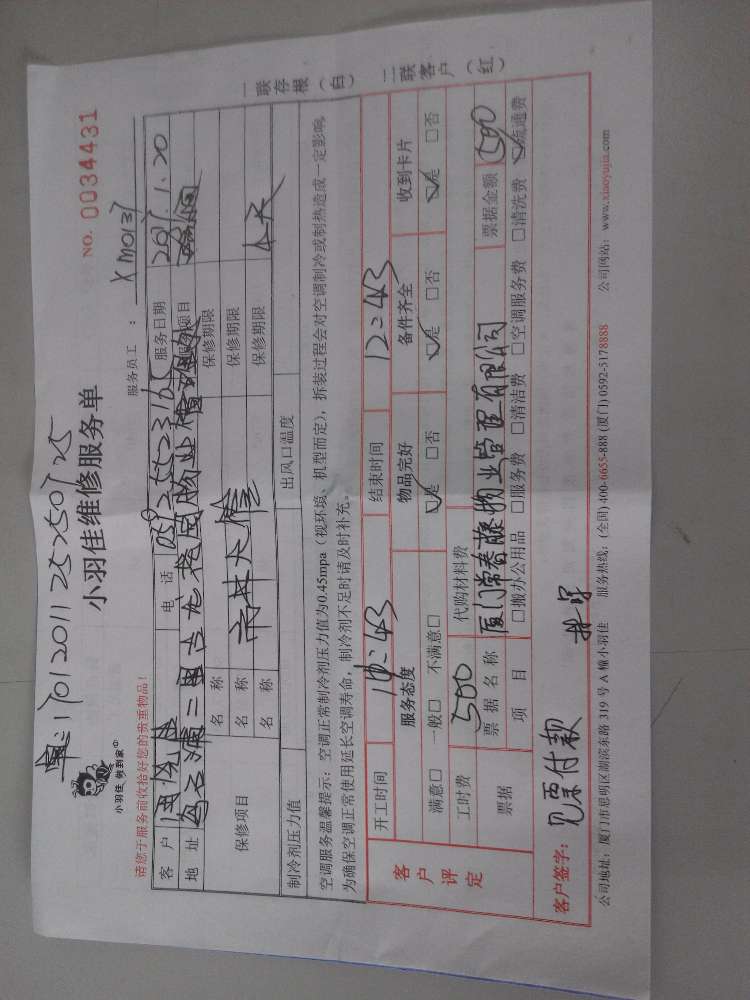 1701201125250125
小羽佳 做到家
小羽佳维修服务单
NO. 0034431
请您于服务前收拾好您的贵重物品!
服务员工 : XM0137
客 户 电 话 05925552316 服务日期 2017.1.20
地 址 服务项目
保修项目
名 称 保修期限
名 称 保修期限
名 称 保修期限
制冷剂压力值 出风口温度
空调服务温馨提示:空调正常制冷剂压力值为0.45mpa(视环境、机型而定),拆装过程会对空调制冷或制热造成一定影响,
为确保空调正常使用延长空调寿命,制冷剂不足时请及时补充。
一联存根(白) 二联客户(红)
客户评定
开工时间 结束时间 12=43
服务态度 物品完好 备件齐全 收到卡片
满意□ 一般□ 不满意□ □是 □否 □是 □否 □是 □否
工时费 500 代购材料费
票据 票 据 名 称 厦门常春藤物业管理有限公司 票据金额 500
项 目 □搬办公用品 □服务费 □清洁费 □空调服务费 □清洗费 □疏通费
客户签字: 见票付款
公司地址:厦门市思明区湖滨东路 319 号 A 幢小羽佳 服务热线:(全国) 400-6655-888 (厦门) 0592-5178888 公司网站:www.xiaoyujia.com